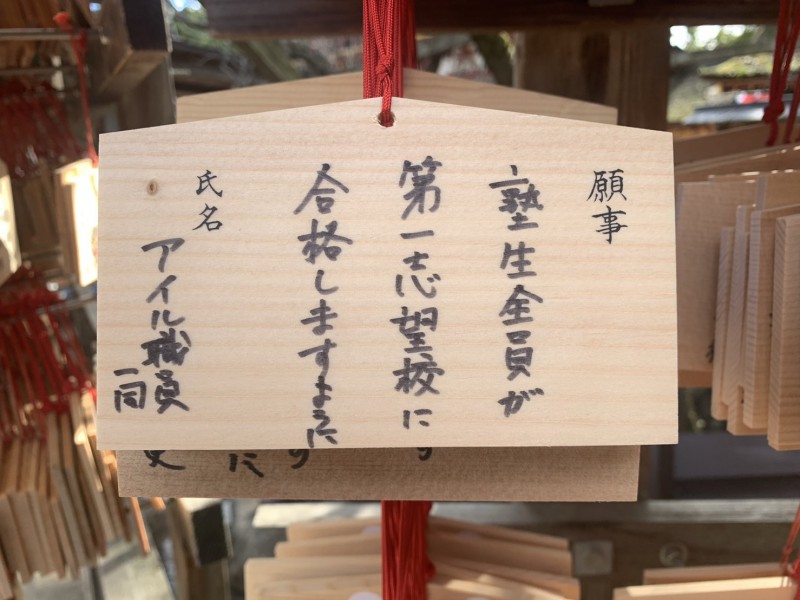 願事
塾生全員が
第一志望校に
合格しますように
氏名
アイル職員
一同